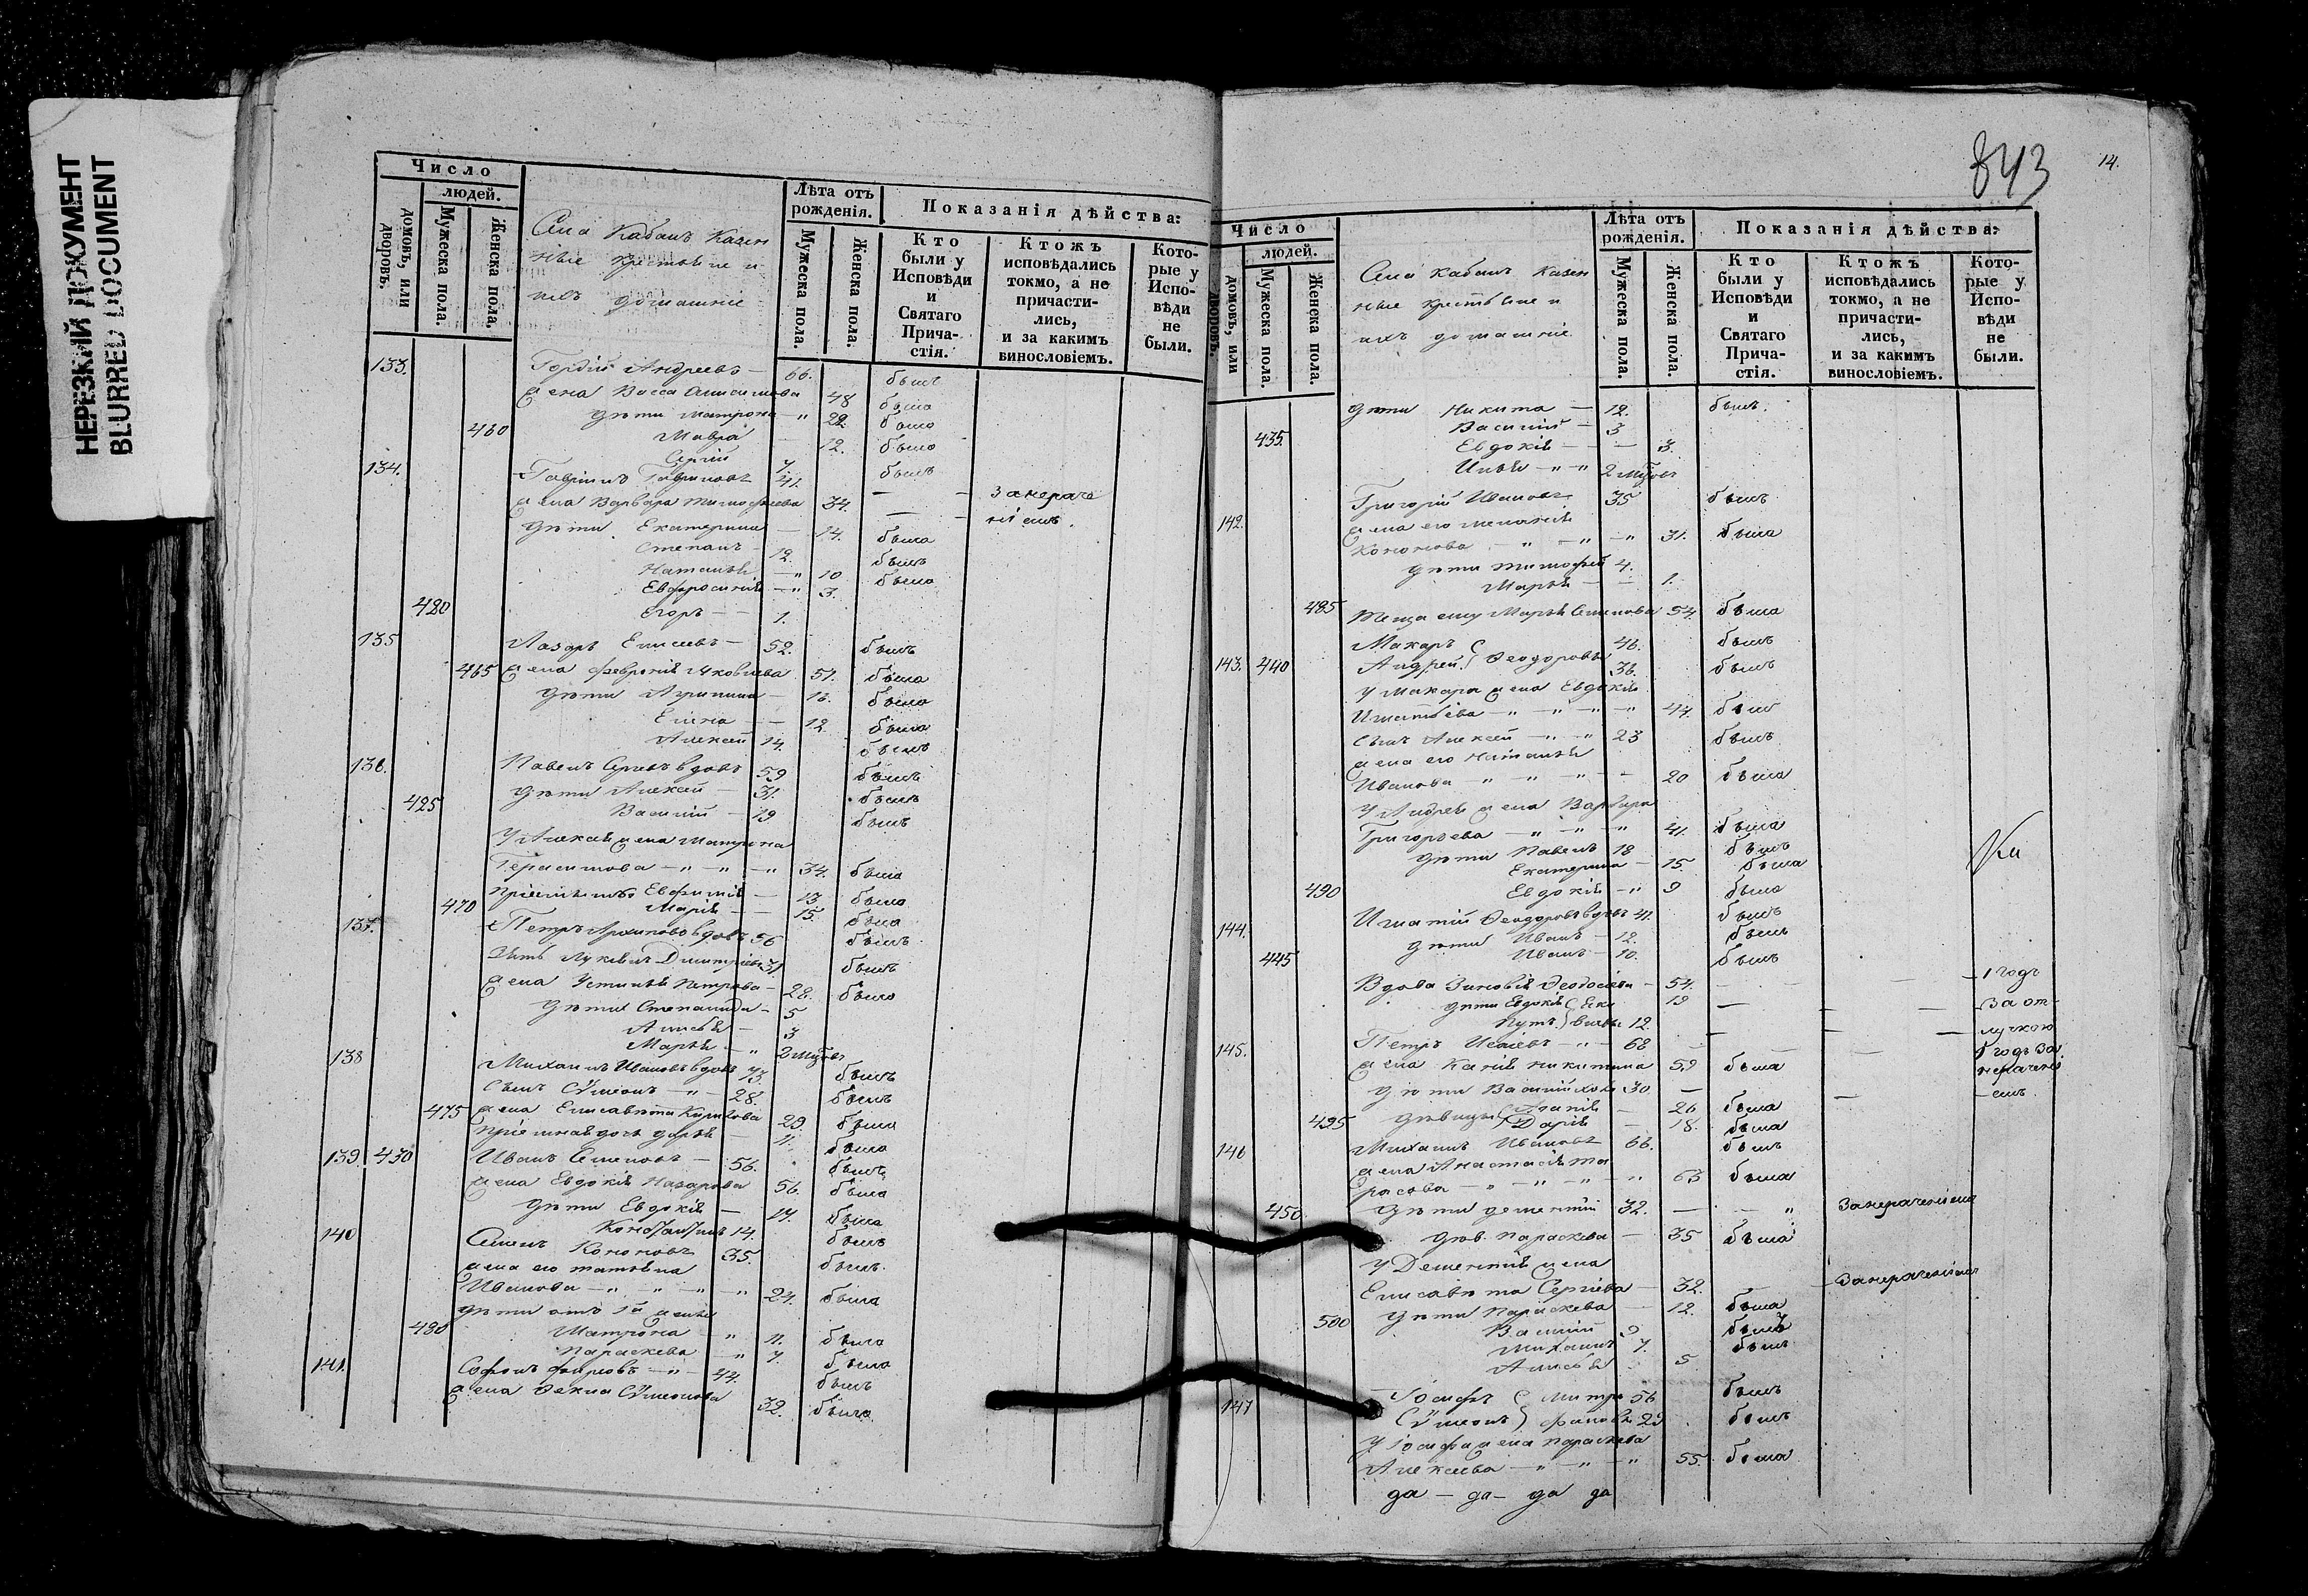 НЕРЕЗКИЙ ДОКУМЕНТ
BLURRED DOCUMENT
Число
людей.
домовъ, или дворовъ.
Мужеска пола.
Женска пола.
Села Кабанъ Казен
ные крестьяне и
ихъ домашніе
Лѣта отъ рожденія.
Мужеска пола.
Женска пола.
Показанія дѣйства:
Кто были у Исповѣди и Святаго Прича- стія.
Ктожъ исповѣдались токмо, а не причасти- лись, и за какимъ винословіемъ.
Кото- рые у Испо- вѣди не были.
133. Гордій Андреевъ — 66. былъ
жена Васса Анисимова 48 была
дѣти Матрона — " 22. была
460 Мавра — 12. была
Сергій 7. былъ
134. Гавріилъ Гавриловъ 41. — — Занераче
жена Варвара Тимофеева 34. — — ніемъ.
дѣти Екатерина — 14. была
Степанъ — 12. былъ
Наталья — " 10 была
Евфросинія — " 3.
420 Егоръ — — 1.
135 Лазарь Елисеевъ — 52. былъ
465 жена Февронія Яковлева 51. была
дѣти Агрипина — 16. была
Елена — — 12. была
Алексей 14. былъ
136. Павелъ Сергеевъ вдовъ 59 былъ
дѣти Алексей — 31. былъ
425 Василій — 19 былъ
У Алексея жена Матрона
Герасимова — " — " — " 34. была
пріемыши Евфимія — 13 была
470 Марія — — 15. была
137. Петръ Архиповъ вдовъ 56 былъ
зять Лукьянъ Димитріевъ 31 былъ
жена Устинья Петрова — 28. была
дѣти Степанида — 5
Анисья — 3
Марья — " 2 мцовъ
138 Михаилъ Ивановъ вдовъ 73. былъ
сынъ Сѵмеонъ — " — 28. былъ
475 жена Елисавета Карпова 29. была
пріемная дочь Дарья — 11. была
139. 430 Иванъ Семеновъ — 56. былъ
жена Евдокія Назарова 56. была
дѣти Евдокія — 17. была
Константинъ 14. былъ
140 Семенъ Кононовъ 35. былъ.
жена его Татьяна
Иванова — " — " — " — " 24. была
дѣти отъ 1й жены
480 Матрона — " 11. была
Параскева — " 7. была
141. Софонъ Фирсовъ — " — 44. былъ
жена Ѳекла Сѵмеонова 32. была
843
14.
Число
людей.
домовъ, или дворовъ.
Мужеска пола.
Женска пола.
Села Кабанъ Казен
ные крестьяне и
ихъ домашніе
Лѣта отъ рожденія.
Мужеска пола.
Женска пола.
Показанія дѣйства:
Кто были у Исповѣди и Святаго Прича- стія.
Ктожъ исповѣдались токмо, а не причасти- лись, и за какимъ винословіемъ.
Кото- рые у Испо- вѣди не были.
дѣти Никита — 12. былъ.
435. Василій — 3
Евдокія — — — 3.
Илья — " — " 2 мцовъ
142. Григорій Ивановъ 35 былъ
жена его Меланія
Кононова — " — " — " 31. была
дѣти Тимофей 4.
Марья — — 1.
485 Теща ему Марья Семенова 54. была
Макаръ 46. былъ
143. 440 Андрей Ѳеодоровы 36. былъ
У Макара жена Евдокія
Игнатьева — " — " — " — " 44. была
сынъ Алексей — " — " 23 былъ
жена его Наталья
Иванова — " — " — " — 20 была
У Андрея жена Варвара
Григорьева — " — " — " 41. была
дѣти Павелъ 18 былъ
Екатерина — 15. была
490 Евдокія — " 9 была
144. Игнатій Ѳеодоровъ вдовъ 41. былъ
дѣти Иванъ — 12. былъ
445 Иванъ — 10. былъ
Вдова Зиновія Ѳеодосіева — 54. — — — 1 годъ
дѣти Евдокія 19 — — За от-
12. — — лучкою
145. Петръ Исаевъ — " — 68 — — 1 годъ За
жена Ксенія Никитина 59 была нерачені
дѣти Василій холо 30 — — — емъ.
495 дѣвицы Агапія — 26 была
Дарія — 18. была
146 Михаилъ Ивановъ 66. былъ
жена Анастасія Та
расова — " — " — " — " 63 была
450 дѣти Дементій 32. — — " Занераченіемъ
дѣв. Параскева — 35 была
У Дементія жена
Елисавета Сергіева — 32. — Занераченіемъ
500 дѣти Параскева — 12. была
Василій 9 былъ
Михаилъ 7. былъ
Анисья 5
147 Іосифъ Митро 56 былъ
Сѵмеонъ фановы 29 былъ
У Іосифа жена Параскева
Алексеева — " — " — " 55. была
да — да — да да